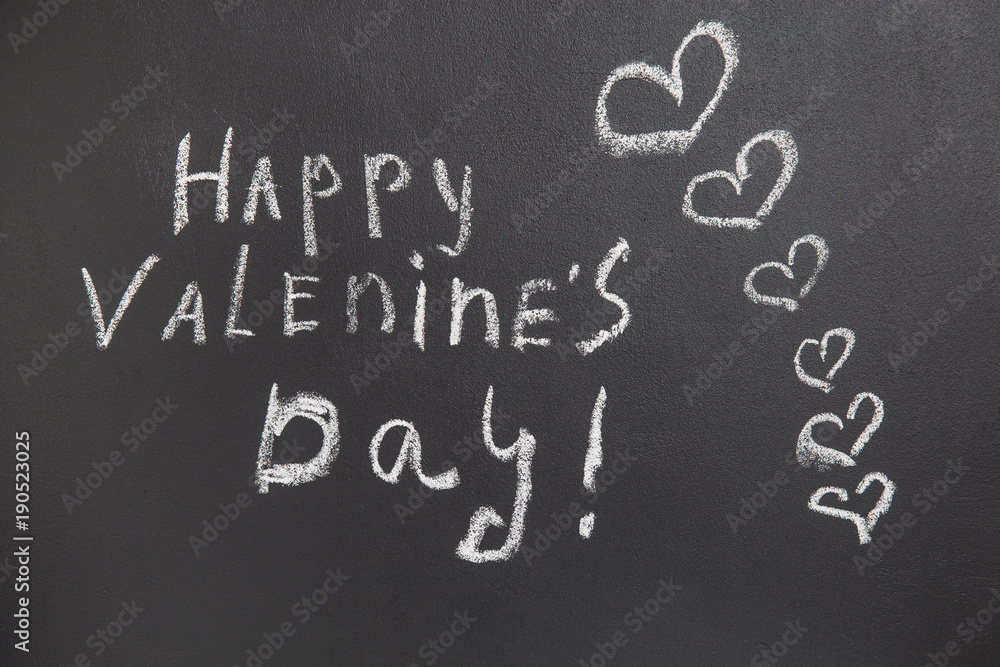 Happy
VALENINE'S
Day!
Adobe Stock | #190523025